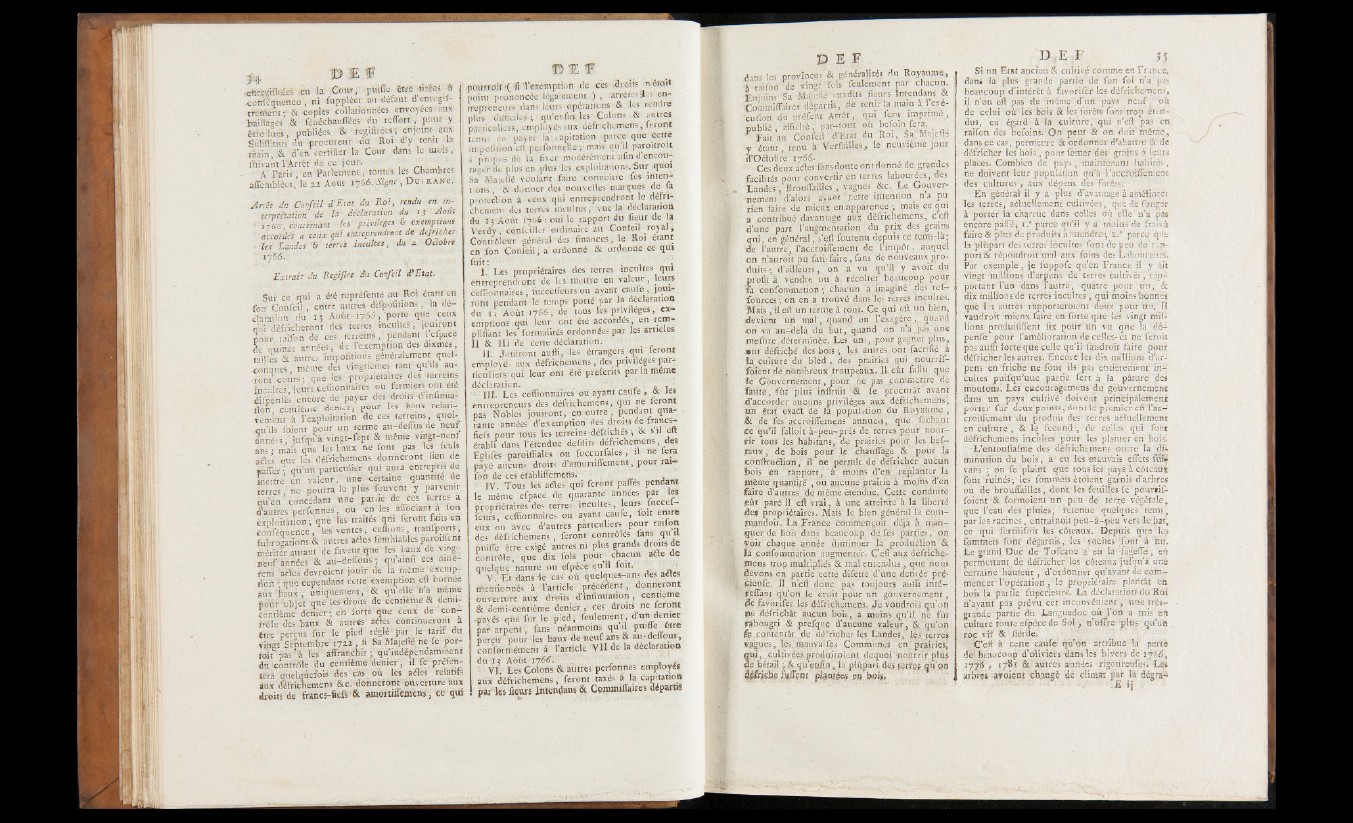 34
DEF
DEF
enregistrées en la Cour, puisse être tirées à
conséquence, ni suppléer au défaut d'enregis-
trement; & copies collationnées envoyées aux
bailliages & sénéchaussées du ressort, pour y
être lues, publiées & registrées; enjoint aux
Substituts du procureur du Roi d'y tenir la
main, & d'en certifier la Cour dans le mois,
suivant l'Arrêt de ce jour.
A Paris, en Parlement, toutes les Chambres
assemblées, le 22 Août 1766. Signé, DUFRANC.
Arrêt du Conseil d'Etat du Roi, rendu en in-
terprétation de la déclaration du 13 Août
1766, concernant les privilèges & exemptions
accordés à ceux qui entreprendront de défricher
les Landes & terres incultes, du 2 Octobre
1766.
Extrait du Registre du Conseil d'Etat.
Sur ce qui a été représenté au Roi étant en
son Conseil, entre autres dispositions, la dé-
claration du 13 Août 1766, porte que ceux
qui défricheront des terres incultes, jouiront
pour raison de ces terreins, pendant l'espace
de quinze années, de l'exemption des dixmes,
tailles & autres impositions généralement quel-
conques, même des vingtièmes tant qu'ils au-
ront cours; que les propriétaires des terreins
incultes, leurs cessionnaires ou fermiers ont été
dispensés encore de payer des droits d'insinua-
tion, centième denier, pour les baux relati-
vement à l'exploitation de ces terreins, quoi-
qu'ils soient pour un terme au-dessus de neuf
années, jusqu'à vingt-sept & même vingt-neuf
ans; mais que les baux ne sont pas les seuls
actes que les défrichemens donneront lieu de
passer; qu'un particulier qui aura entrepris de
mettre en valeur, une certaine quantité de
terres, ne pourra le plus souvent y parvenir
qu'en concédant une partie de ces terres à
d'autres personnes, ou en les associant à son
exploitation; que les traités qui seront faits en
conséquence, les ventes, cessions, transports,
subrogations & autres actes semblables paroissent
mériter autant de faveur que les baux de vingt-
neuf années & au-dessous; qu'ainsi ces diffé-
rens actes devroient jouir de la même exemp-
tion; que cependant cette exemption est bornée
aux baux, uniquement, & qu'elle n'a même
pour objet que les droits de centième & demi-
centième denier; en sorte que ceux de con-
trôle des baux & autres actes continueront à
être perçus sur le pied réglé par le tarif du
vingt Septembre 1722, si Sa Majesté ne se por-
toit pas à les affranchir; qu'indépendamment
du contrôle du centième denier, il se présen-
tera quelquefois des cas où les actes relatifs
aux défrichemens &c. donneront ouverture aux
droits de francs-fiefs & amortissemens, ce qui
pourroit (si l'exemption de ces droits n'étoit
point prononcée légalement), arrêter les en-
trepreneurs dans leurs opérations & les rendre
plus difficiles; qu'enfin les Colons & autres
particuliers, employés aux défrichemens, seront
tenus de payer la capitation parce que cette
imposition est personnelle; mais qu'il paroîtroit
à propos de la fixer modérément afin d'encou-
rager de plus en plus les exploitations. Sur quoi
Sa Majesté voulant faire connoître ses inten-
tions, & donner des nouvelles marques de sa
protection à ceux qui entreprendront le défri-
chement des terres incultes, vue la déclaration
du 13 Août 1766: oui le rapport du sieur de la
Verdy, conseiller ordinaire au Conseil royal,
Contrôleur général des finances, le Roi étant
en son Conseil, a ordonné & ordonne ce qui
suit:
I. Les propriétaires des terres incultes qui
entreprendront de les mettre en valeur, leurs
cessionnaires, successeurs ou ayant cause, joui-
ront pendant le temps porté par la déclaration
du 13 Août 1766, de tous les privilèges, ex-
emptions qui leur ont été accordés, en rem-
plissant les formalités ordonnées par les articles
II & III de cette déclaration.
II. Jouiront aussi, les étrangers qui seront
employés aux défrichemens, des privilèges par-
ticuliers qui leur ont été prescrits par la même
déclaration.
III. Les cessionnaires ou ayant cause, & les
entrepreneurs des défrichemens, qui ne seront
pas Nobles jouiront, en outre, pendant qua-
rante années d'exemption des droits de francs-
fiefs pour tous les terreins défrichés, & s'il est
établi dans l'étendue desdits défrichemens, des
Eglises paroissiales ou succursales, il ne sera
payé aucuns droits d'amortissement, pour rai-
son de ces établissemens.
IV. Tous les actes qui seront passés pendant
le même espace de quarante années par les
propriétaires des terres incultes, leurs succes-
seurs, cessionnaires ou ayant cause, soit entre
eux ou avec d'autres particuliers pour raison
des défrichemens, seront contrôlés sans qu'il
puisse être exigé autres ni plus grands droits de
contrôle, que dix sols pour chacun acte de
quelque nature ou espèce qu'il soit.
V. Et dans le cas où quelques-uns des actes
mentionnés à l'article précédent, donneront
ouverture aux droits d'insinuation, centième
& demi-centième denier, ces droits ne seront
payés que sur le pied, seulement, d'un denier
par arpent, sans néanmoins qu'il puisse être
perçu pour les baux de neuf ans & au-dessous,
conformément à l'article VII de la déclaration
du 13 Août 1766.
VI. Les Colons & autres personnes employés
aux défrichemens, seront taxés à la capitation
par les sieurs Intendans & Commissaires départis
DEF
DEF
35
dans les provinces & généralités du Royaume,
à raison de vingt sols seulement par chacun.
Enjoint Sa Majesté auxdits sieurs Intendans &
Commissaires départis, de tenir la main à l'exé-
cution du présent Arrêt, qui sera imprimé,
publié, affiché, par-tout où besoin sera.
Fait au Conseil d'Etat du Roi, Sa Majesté
y étant, tenu à Versailles, le neuvième jour
d'Octobre 1766.
Ces deux actes sans doute ont donné de grandes
facilités pour convertir en terres labourées, des
Landes, Broussailles, vagues &c. Le Gouver-
nement d'alors ayant cette intention n'a pu
rien faire de mieux en apparence; mais ce qui
a contribué davantage aux défrichemens, c'est
d'une part l'augmentation du prix des grains
qui, en général, s'est soutenu depuis ce tems-là;
de l'autre, l'accroissement de l'impôt, auquel
on n'auroit pu satisfaire, sans de nouveaux pro-
duits; d'ailleurs, on a vu qu'il y avoit du
profit à vendre ou à récolter beaucoup pour
sa consommation; chacun a imaginé des res-
sources; on en a trouvé dans les terres incultes.
Mais, il est un terme à tout. Ce qui est un bien,
devient un mal, quand on l'exagère, quand
on va au-delà du but, quand on n'a pas une
mesure déterminée. Les uns, pour gagner plus,
ont défriché des bois; les autres ont sacrifié à
la culture du bled, des prairies qui nourris-
soient de nombreux troupeaux. Il eût fallu que
le Gouvernement, pour ne pas commettre de
faute, fût plus instruit & se procurât avant
d'accorder aucuns privilèges aux défrichemens,
un état exact de la population du Royaume,
& de ses accroissemens annuels, que sachant
ce qu'il falloit à-peu-près de terres pour nour-
rir tous les habitans, de prairies pour les bes-
taux, de bois pour le chauffage & pour la
construction, il ne permît de défricher aucun
bois en rapport, à moins d'en replanter la
même quantité, ou aucune prairie à moins d'en
faire d'autres de même étendue. Cette conduite
eût paré il est vrai, à une atteinte à la liberté
des propriétaires. Mais le bien général le com-
mandoit. La France commençoit déjà à man-
quer de bois dans beaucoup de ses parties, on
voit chaque année diminuer la production &
la consommation augmenter. C'est aux défriche-
mens trop multipliés & mal entendus, que nous
devons en partie cette disette d'une denrée pré-
cieuse. Il n'est donc pas toujours aussi inté-
ressant qu'on le croit pour un gouvernement,
de favoriser les défrichemens. Je voudrois qu'on
ne défrichât aucun bois, à moins qu'il ne fût
rabougri & presque d'aucune valeur, & qu'on
se contentât de défricher les Landes, les terres
vagues, les mauvaises Communes en prairies,
qui, cultivées produiroient dequoi nourrir plus
de bétail; & qu'enfin, la plûpart des terres qu'on
défriche fussent plantées en bois.
Si un Etat ancien & cultivé comme en France,
dans la plus grande partie de son sol n'a pas
beaucoup d'intérêt à favoriser les défrichemens,
il n'en est pas de même d'un pays neuf, ou
de celui où les bois & les forêts sont trop éten-
dus, eu égard à la culture, qui n'est pas en
raison des besoins. On peut & on doit même,
dans ce cas, permettre & ordonner d'abattre & de
défricher les bois, pour semer des grains à leurs
places. Combien de pays, maintenant habités,
ne doivent leur population qu'à l'accroissement
des cultures, aux dépens des forêts.
En général il y a plus d'avantage à améliorer
les terres, actuellement cultivées, que de songer
à porter la charrue dans celles où elle n'a pas
encore passé, 1.° parce qu'il y a moins de frais à
faire & plus de produits à attendre; 2.° parce que
la plûpart des terres incultes sont de peu de rap-
port & répondroit mal aux soins des Laboureurs.
Par exemple, je suppose qu'en France il y ait
vingt millions d'arpens de terres cultivés, rap-
portant l'un dans l'autre, quatre pour un, &
dix millions de terres incultes, qui moins bonnes
que les autres rapporteroient deux pour un. Il
vaudroit mieux faire en sorte que les vingt mil-
lions produisissent six pour un vu que la dé-
pense pour l'amélioration de celles-ci ne seroit
pas aussi forte que celle qu'il faudroit faire pour
défricher les autres. Encore les dix millions d'ar-
pens en friche ne sont ils pas entièrement in-
cultes puisqu'une partie sert à la pâture des
moutons. Les encouragemens du gouvernement
dans un pays cultivé doivent principalement
porter sur deux points, dont le premier est l'ac-
croissement du produit des terres actuellement
en culture, & le second, de celles qui sont
défrichemens incultes pour les planter en bois.
L'entousiasme des défrichemens outre la di-
minution du bois, a eu les mauvais effets sui-
vans; on se plaint que tous les pays à côteaux
sont ruinés; les sommets étoient garnis d'arbres
ou de broussailles, dont les feuilles se pourris-
soient & formoient un peu de terre végétale,
que l'eau des pluies, retenue quelques tems,
par les racines, entraînoit peu-à-peu vers le bas,
ce qui fertilisoit les côteaux. Depuis que les
sommets sont dégarnis, les roches sont à nu.
Le grand Duc de Toscane a eu la sagesse, en
permettant de défricher les côteaux jusqu'à une
certaine hauteur, d'ordonner qu'avant de com-
mencer l'opération, le propriétaire plantât en
bois la partie supérieure. La déclaration du Roi
n'ayant pas prévu cet inconvénient, une très-
grande partie du Languedoc où l'on a mis en
culture toute espèce de Sol, n'offre plus qu'un
roc vif & stérile.
C'est à cette cause qu'on attribue la perte
de beaucoup d'oliviers dans les hivers de 1766,
1776, 1781 & autres années rigoureuses. Les
arbres avoient changé de climat par la dégra-
E ij